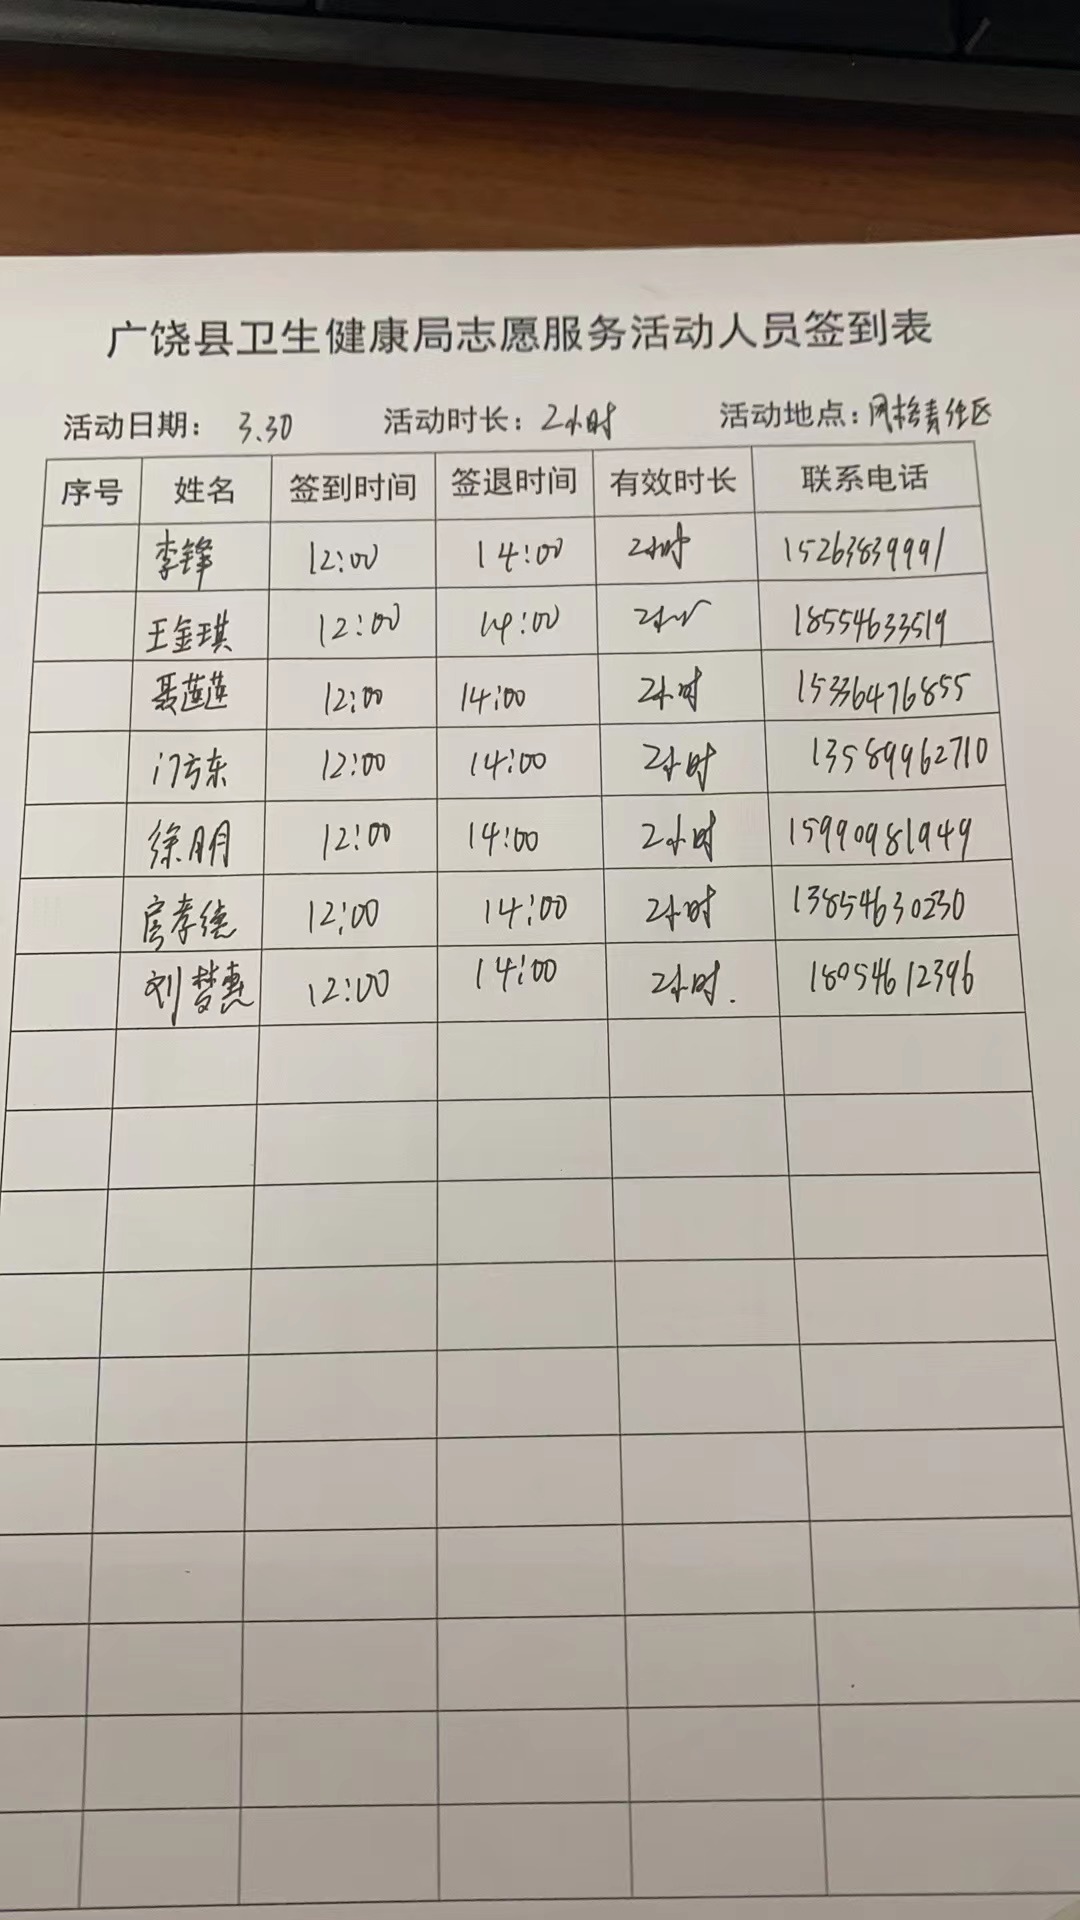 广饶县卫生健康局志愿服务活动人员签到表
活动日期： 3.30 活动时长：2小时 活动地点：网格责任区
序号 姓名 签到时间 签退时间 有效时长 联系电话
李锋 12:00 14:00 2小时 15263839991
王金琪 12:00 14:00 2小时 18554633519
聂莲莲 12:00 14:00 2小时 15336476855
门方东 12:00 14:00 2小时 13589962710
徐朋 12:00 14:00 2小时 15990981949
房孝德 12:00 14:00 2小时 13854630230
刘梦惠 12:00 14:00 2小时. 18054612396